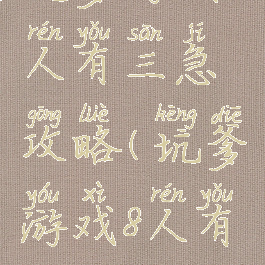 rén yǒu sān jí
人有三急
gōng lüè kēng diē
攻略(坑爹
yóu xì rén yǒu
游戏8人有